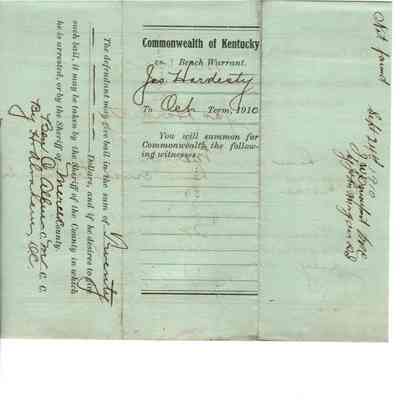 Commonwealth of Kentucky
vs. } Bench Warrant.
Jas Hardesty
To Oct Term, 1910
You will summon for
Commonwealth the follow-
ing witnesses:
The defendant may give bail in the sum of Twenty
Dollars, and if he desires to give
such bail, it may be taken by the Sheriff of the County in which
he is arrested, or by the Sheriff of Mercer County.
Ben C Allin C M C. C.
By H. D. C.
Not found
Sept 21st 1910